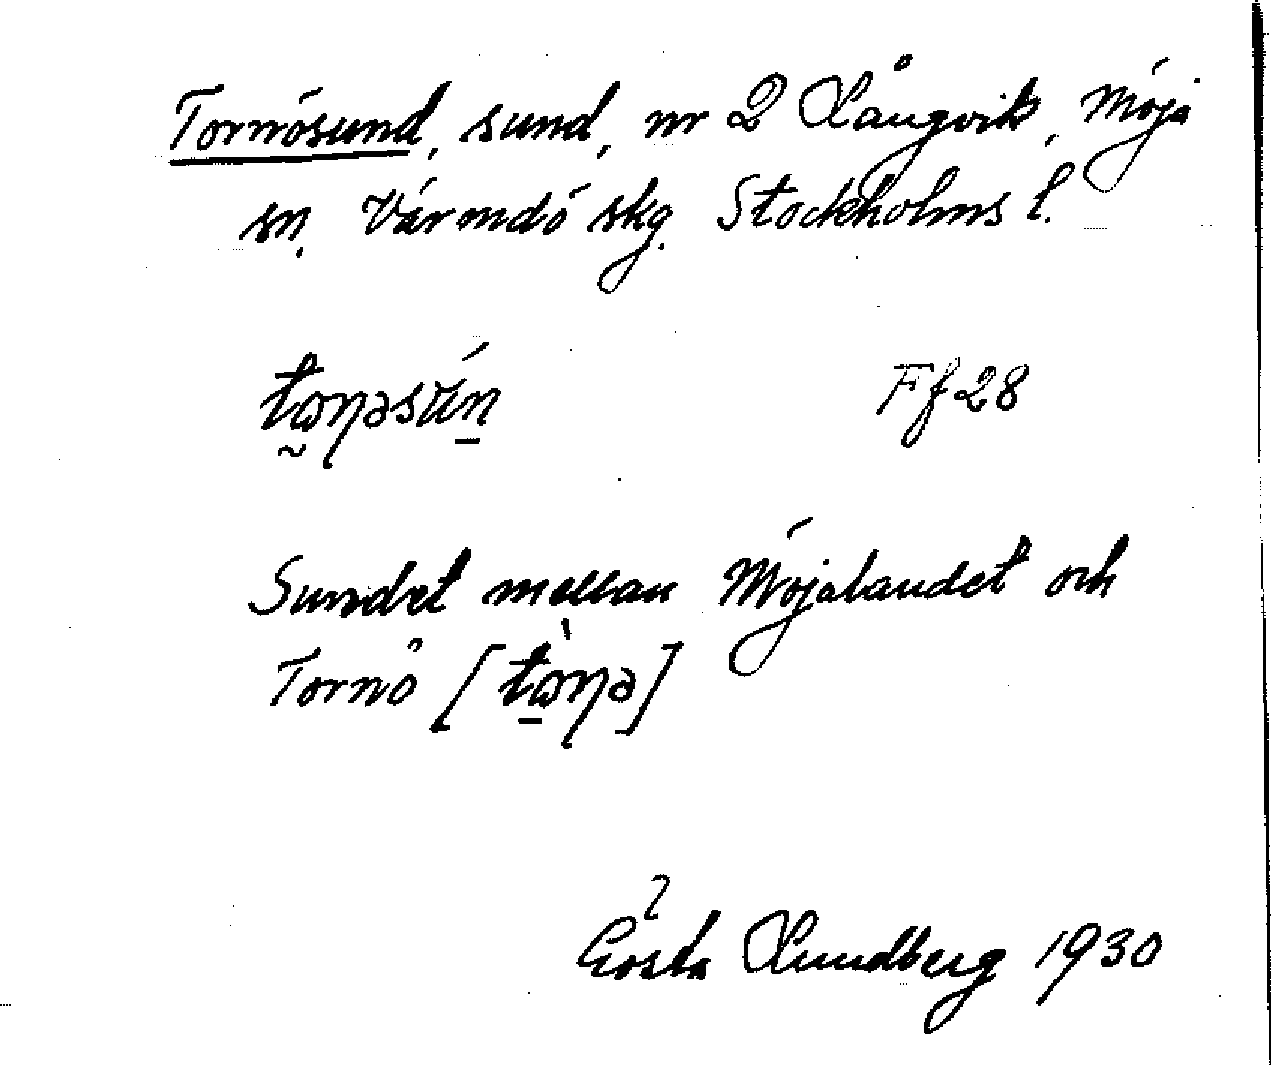 Tornösund, sund, nr 2 Långvik, Möja
sn. Värmdö skg. Stockholms l.
Ff 28
Sundet mellan Möjalandet och
Tornö
Gösta Lundberg 1930